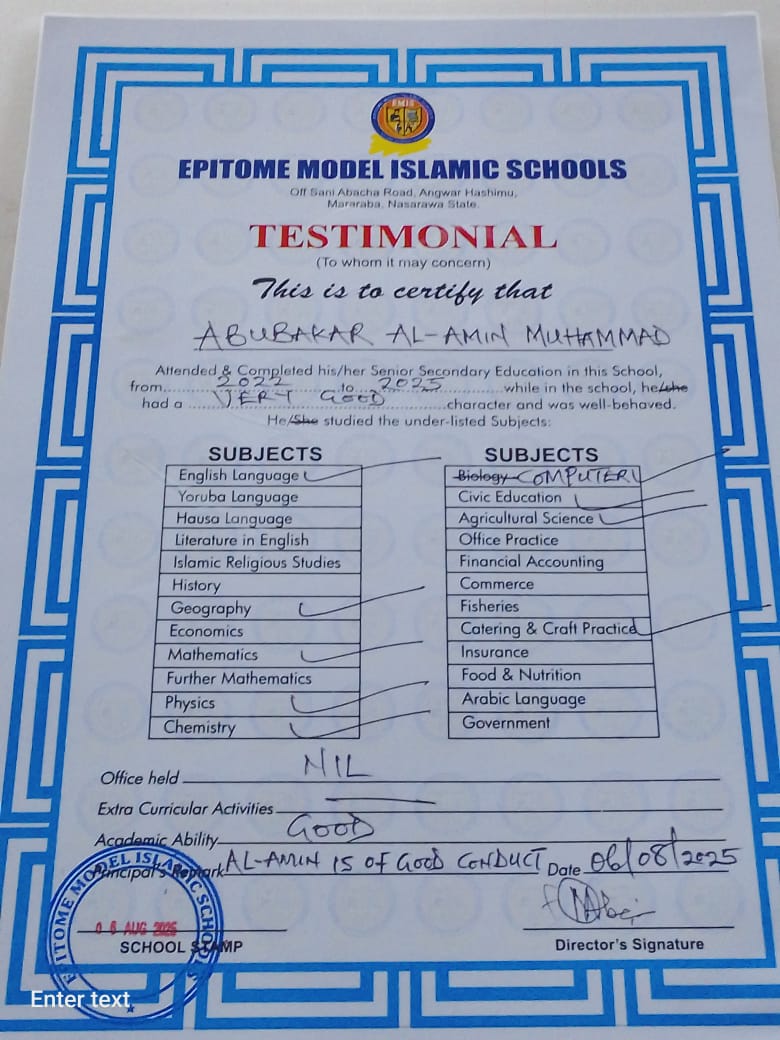 EMIS
EPITOME MODEL ISLAMIC SCHOOLS
Off Sani Abacha Road, Angwar Hashimu,
Mararaba, Nasarawa State.
TESTIMONIAL
(To whom it may concern)
This is to certify that
ABUBAKAR AL-AMIN MUHAMMAD
Attended & Completed his/her Senior Secondary Education in this School,
from 2022 to 2025 while in the school, he/she
had a VERY GOOD character and was well-behaved.
He/She studied the under-listed Subjects:
SUBJECTS
English Language
Yoruba Language
Hausa Language
Literature in English
Islamic Religious Studies
History
Geography
Economics
Mathematics
Further Mathematics
Physics
Chemistry
SUBJECTS
Biology COMPUTER
Civic Education
Agricultural Science
Office Practice
Financial Accounting
Commerce
Fisheries
Catering & Craft Practice
Insurance
Food & Nutrition
Arabic Language
Government
Office held NIL
Extra Curricular Activities
Academic Ability GOOD
Principal's Remark AL-AMIN IS OF GOOD CONDUCT Date 06/08/2025
EPITOME MODEL ISLAMIC SCHOOLS
06 AUG 2025
SCHOOL STAMP
Director's Signature
Enter text